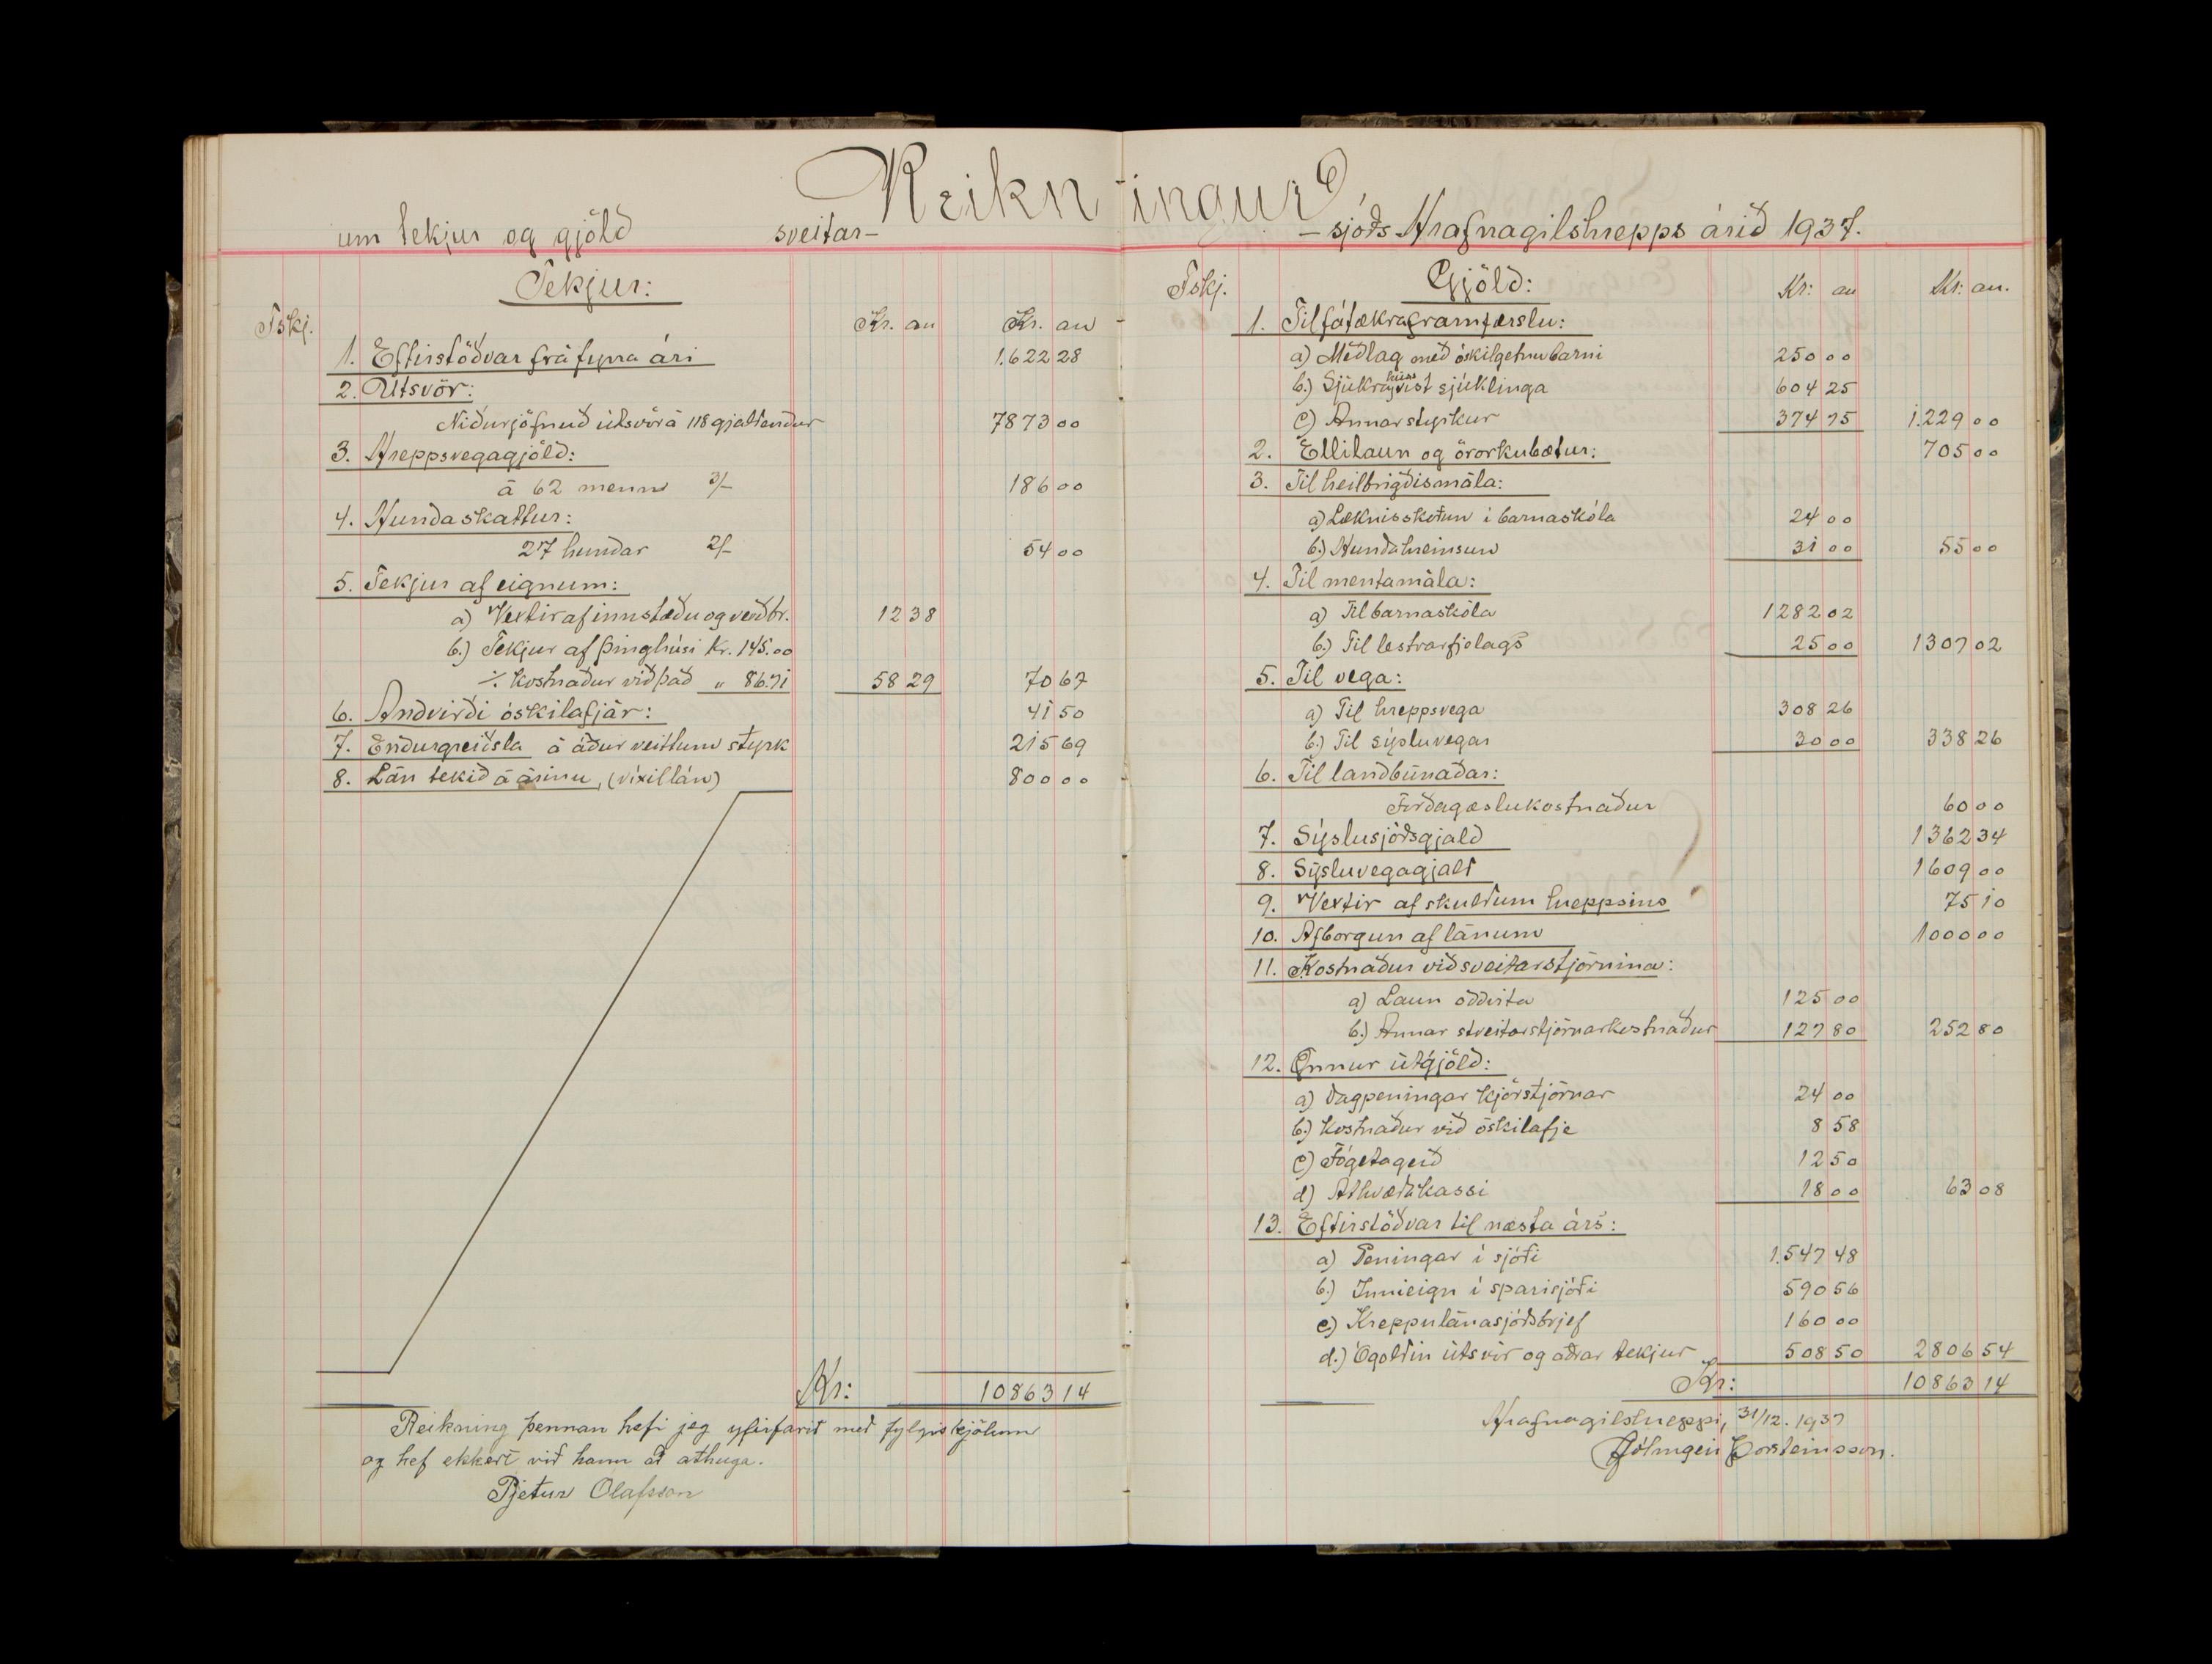 Reikningur
um tekjur og gjöld sveitar-
-sjóðs Hrafnagilshrepps árið 1937.
Tekjur:
Fskj. Kr. au Kr. au
1. Eftirstöðvar frá fyrra ári 1.622 28
2. Útsvör:
Niðurjöfnuð útsvör á 118 gjaldendur 7873 00
3. Hreppsvegagjöld:
á 62 menn 3/- 186 00
4. Hundaskattur:
27 hundar 2/- 54 00
5. Tekjur af eignum:
a) Vextir af innstæðu og verðbr. 12 38
b.) Tekjur af þinghúsi kr. 145.00
÷ kostnaður við það " 86.71 58 29 70 67
6. Andvirði óskilafjár: 41 50
7. Endurgreiðsla á áður veittum styrk 215 69
8. Lán tekið á árinu, (víxillán) 800 00
Kr: 10863 14
Reikning þennan hefi jeg yfirfarið með fylgiskjölum
og hef ekkert við hann að athuga.
Pjetur Ólafsson
Fskj. Gjöld: Kr: au Kr: au.
1. Til fátækraframfærslu:
a) Meðlag með óskilgetnu barni 250 00
b.) Sjúkrahúsvist sjúklinga 604 25
c) Annar styrkur 374 75 1.229 00
2. Ellilaun og örorkubætur: 705 00
3. Til heilbrigðismála:
a) Læknisskoðun í barnaskóla 24 00
b.) Hundahreinsun 31 00 55 00
4. Til mentamála:
a) Til barnaskóla 1282 02
b.) Til lestrarfjelags 25 00 1307 02
5. Til vega:
a) Til hreppsvega 308 26
b.) Til sýsluvegar 30 00 338 26
6. Til landbúnaðar:
Forðagæslukostnaður 60 00
7. Sýslusjóðsgjald 1362 34
8. Sýsluvegagjald 1609 00
9. Vextir af skuldum hreppsins 75 10
10. Afborgun af lánum 1000 00
11. Kostnaður við sveitarstjórnina:
a) Laun oddvita 125 00
b.) Annar stveitarstjórnarkostnaður 127 80 252 80
12. Önnur útgjöld:
a) Dagpeningar kjörstjórnar 24 00
b.) Kostnaður við óskilafje 8 58
c) Fógetagerð 12 50
d) Atkvæðakassi 18 00 63 08
13. Eftirstöðvar til næsta árs:
a) Peningar í sjóði 1.547 48
b.) Innieign í sparisjóði 590 56
c) Kreppulánasjóðsbrjef 160 00
d.) Ógoldin útsvör og aðrar tekjur 508 50 2806 54
Kr: 10863 14
Hrafnagilshreppi, 31/12. 1937
Hólmgeir Þorsteinsson.